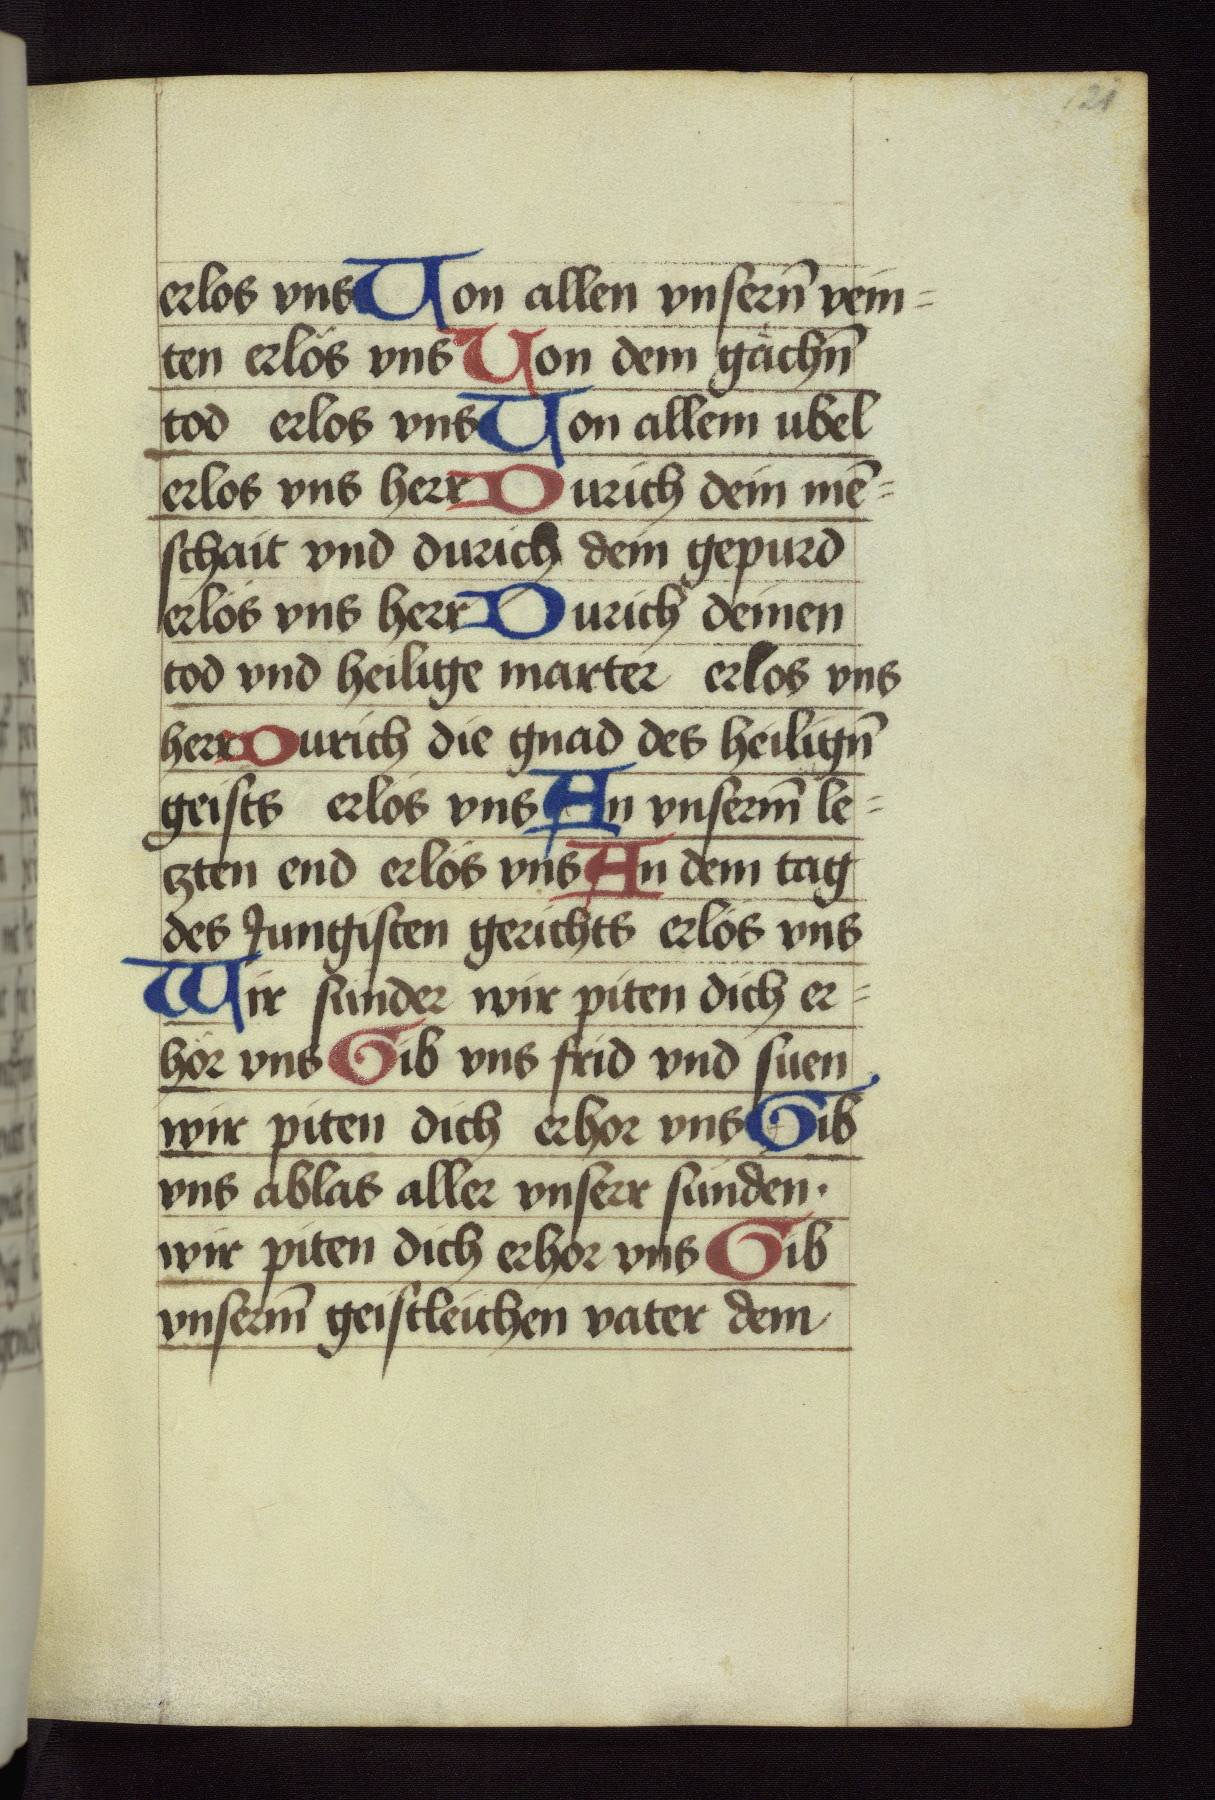 121
erlos vns Von allen vnsern̄ vein=
ten erlös vns Von dem gächn̄
tod erlos vns Von allem ubel
erlos vns herr Durich dein mē=
schait vnd durich dein gepurd
erlös vns herr Durich deinen
tod vnd heilige marter erlos vns
herr Durich die gnad des heilign̄
geists erlös vns An vnserm̄ le=
tzten end erlös vns An dem tag
des Jungisten gerichts erlös vns
Wir sünder wir piten dich er=
hör vns Gib vns frid vnd suen
wir piten dich erhor vns Gib
vns ablas aller vnserr sünden·
wir piten dich erhör vns Gib
vnserm̄ geistleichen vater dem